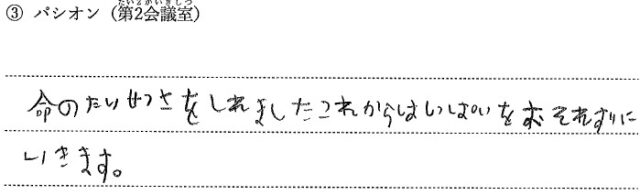 ③ パシオン（第2会議室）
命のたいせつさをしれましたこれからはしっぱいをおそれずに
いきます。